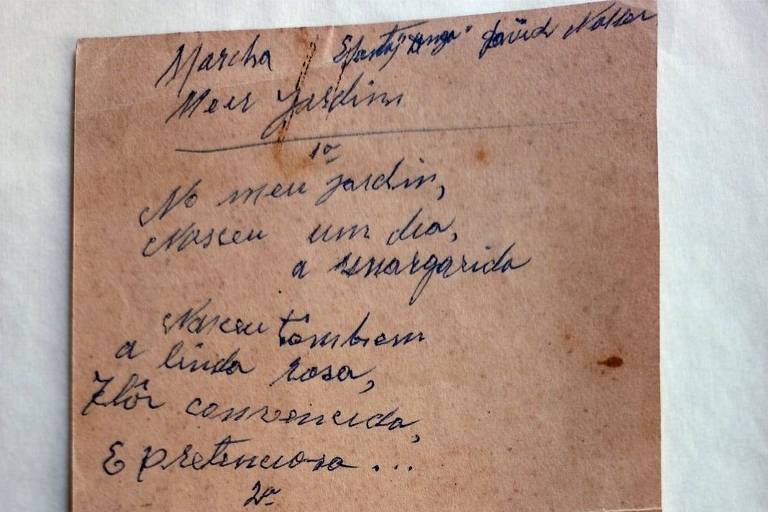 Marcha David Nasser
Meu jardim
1ª
No meu jardin,
Nasceu um dia,
a margarida
Nasceu tâmbem
a linda rosa,
Flôr convencida,
E pretenciosa...
2ª